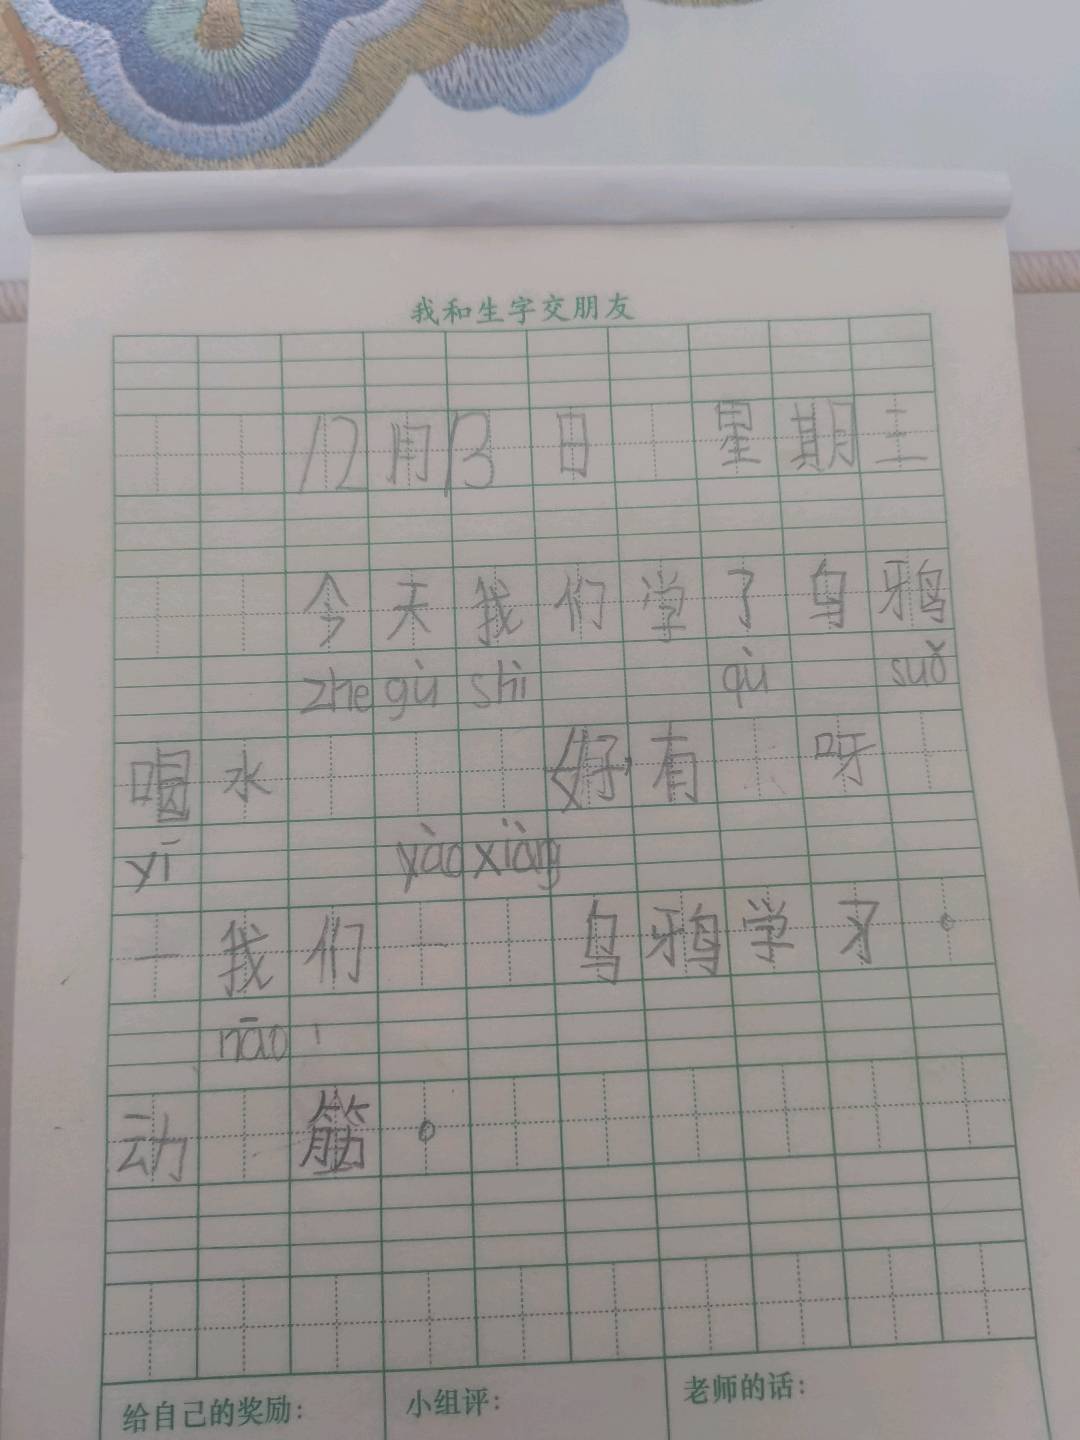 我和生字交朋友
12月13日 星期三
今天我们学了乌鸦
zhe gù shì qù suǒ
喝水 好有 呀
yī yào xiàng
一我们 乌鸦学习。
nāo
动 筋。
给自己的奖励: 小组评: 老师的话: